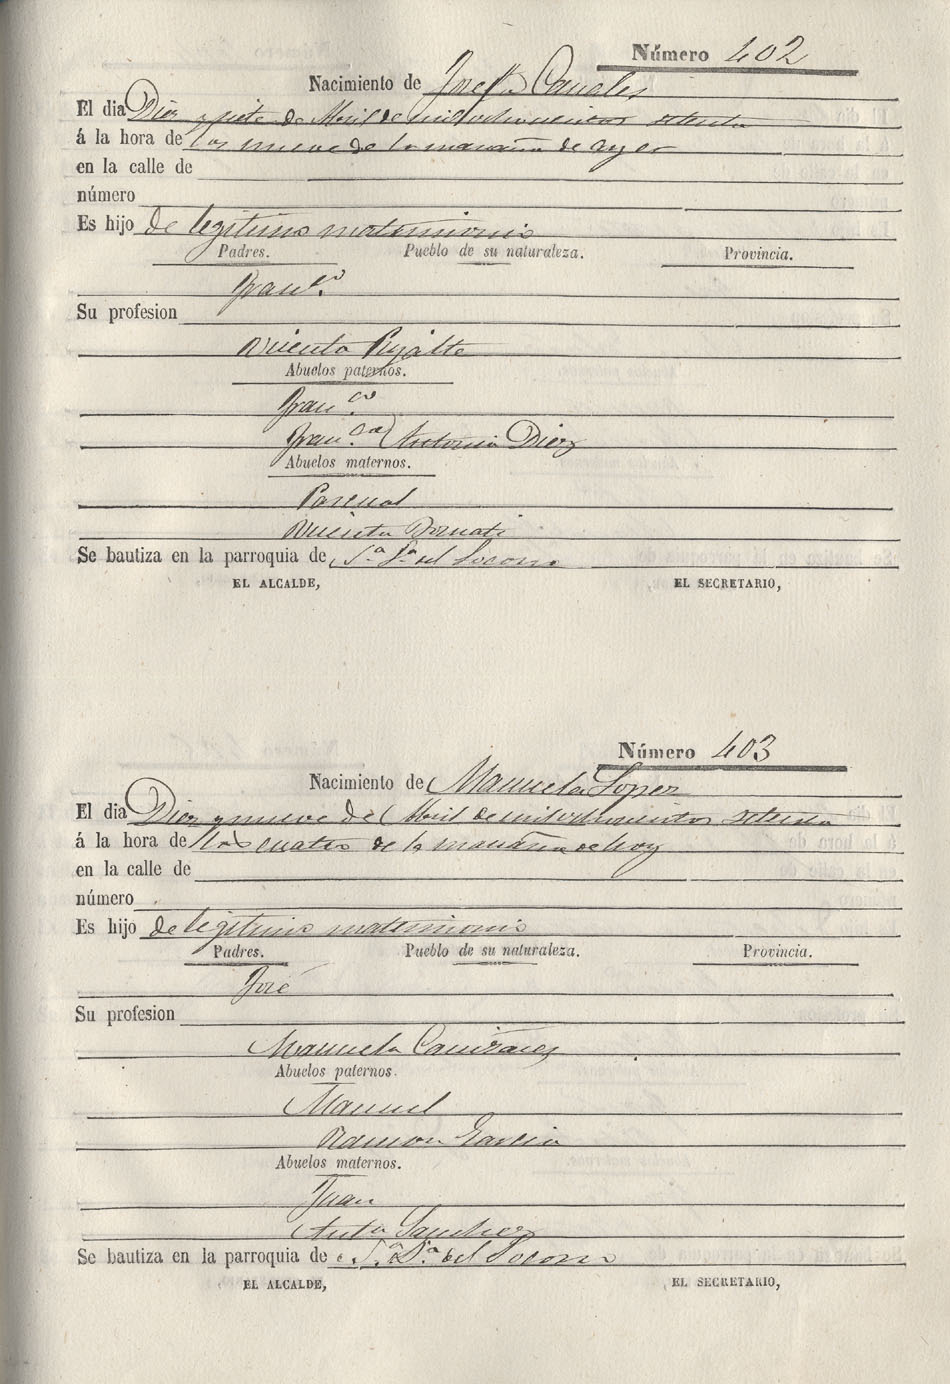 Número 402
Nacimiento de Josefa Canales
El dia Diez y siete de Abril de mil ochocientos setenta
á la hora de las nueve de la mañana de ayer
en la calle de
número
Es hijo de legitimo matrimonio
Padres. Pueblo de su naturaleza. Provincia.
Franco.
Su profesion
Vicenta Pujalte
Abuelos paternos.
Franco.
Franca. Antonia Diez
Abuelos maternos.
Pascual
Vicenta
Se bautiza en la parroquia de Sa. del Socorro
EL ALCALDE, EL SECRETARIO,
Número 403
Nacimiento de Manuela Lopez
El dia Diez y nueve de Abril de mil ochocientos setenta
á la hora de las cuatro de la mañana de hoy
en la calle de
número
Es hijo de legitimo matrimonio
Padres. Pueblo de su naturaleza. Provincia.
José
Su profesion
Manuela Cañizares
Abuelos paternos.
Manuel
Ramona Garcia
Abuelos maternos.
Juan
Anta. Sanchez
Se bautiza en la parroquia de del Socorro
EL ALCALDE, EL SECRETARIO,